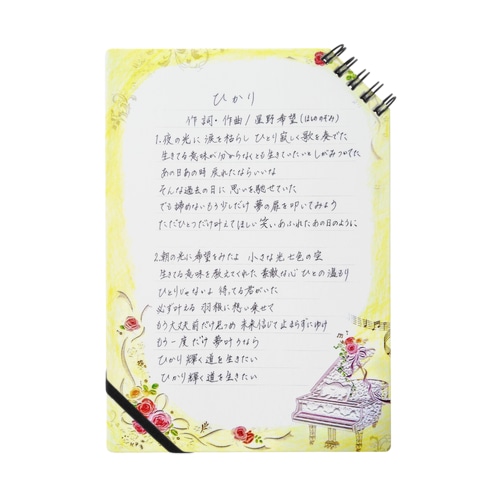 ひかり
作詞・作曲/星野希望(ほしののぞみ)
1.夜の光に 涙を枯らし ひとり寂しく歌を奏でた
生きてる意味が分からなくとも生きていたいとしがみついてた
あの日あの時 戻れたならいいな
そんな過去の日に 思いを馳せていた
でも諦めないもう少しだけ 夢の扉を叩いてみよう
ただひとつだけ叶えてほしい 笑いあふれたあの日のように
2.朝の光に希望をみたよ 小さな光七色の空
生きてる意味を教えてくれた 素敵な心 ひとの温もり
ひとりじゃないよ 待ってる君がいた
必ず叶える 羽根に想い乗せて
もう大丈夫前だけ見つめ 未来信じて止まらずにゆけ
もう一度だけ 夢叶うなら
ひかり輝く道を生きたい
ひかり輝く道を生きたい